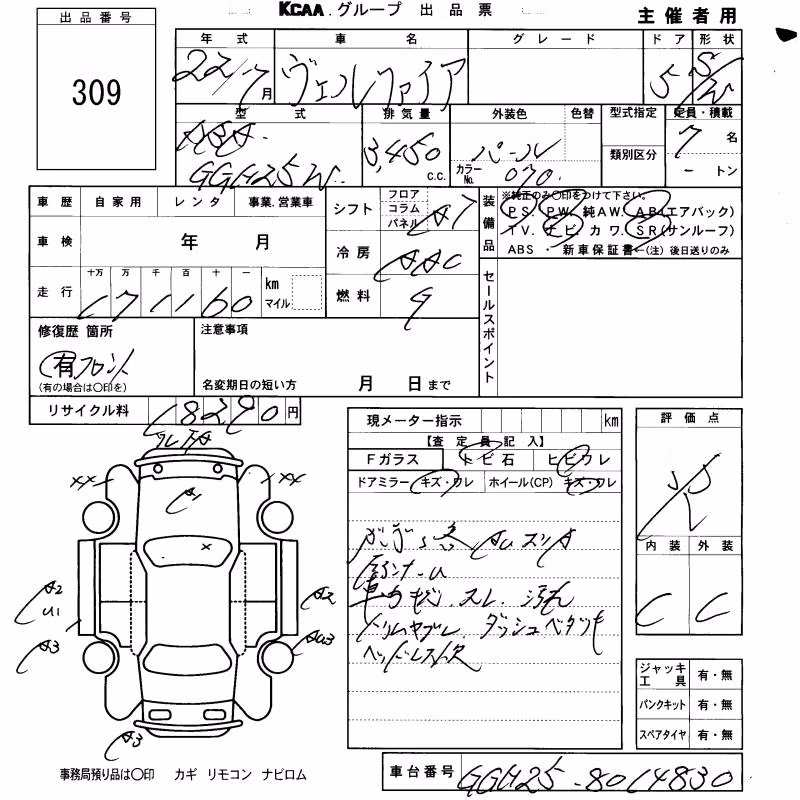 KCAA.グループ 出品票
主催者用
出品番号
309
年式 車名 グレード ドア 形状
22/7月 ヴェルファイア 5 S/W
型式 排気量 外装色 色替 型式指定 定員・積載
ABA- 3,450 c.c. パール 7名
GGH25W カラーNo. 070 類別区分 ートン
車歴 自家用 レンタ 事業.営業車
シフト フロア コラム パネル A7
装備品
※純正のみ〇印をつけて下さい。
PS. PW. 純AW. AB(エアバック)
TV. ナビ カワ. SR(サンルーフ)
ABS ・ 新車保証書←(注)後日送りのみ
車検 年 月
冷房 AAC
走行 十万 万 千 百 十 一 km マイル
171160
燃料 G
セールスポイント
修復歴 箇所
有 フロント
(有の場合は〇印を)
注意事項
名変期日の短い方 月 日まで
リサイクル料 18290円
現メーター指示 km
【査定員記入】
Fガラス トビ石 ヒビワレ
ドアミラー キズ・ワレ ホイール(CP) キズ・ワレ
評価点
R
内装 外装
C C
XX XX
A1
X
A2
U1
A3
A2
AU3
A3
車内キズ.スレ.汚れ
ダッシュベタツキ
ヘッドレス欠
ジャッキ工具 有・無
パンクキット 有・無
スペアタイヤ 有・無
事務局預り品は〇印 カギ リモコン ナビロム
車台番号 GGH25-8014830